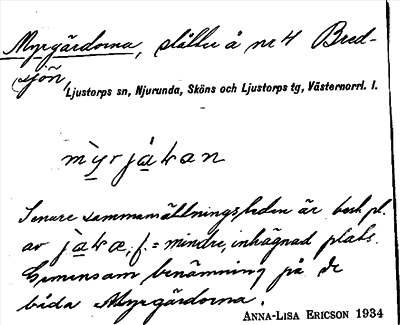 Myrgärdorna, ställe å nr 4 Bred-
sjön,
Ljustorps sn, Njurunda, Sköns och Ljustorps tg, Västernorrl. l.
mỳrjàkan
Senare sammansättningsleden är best. pl.
av jàka, f. = mindre, inhägnad plats.
Gemensam benämning på de
båda Myrgärdorna.
ANNA-LISA ERICSON 1934